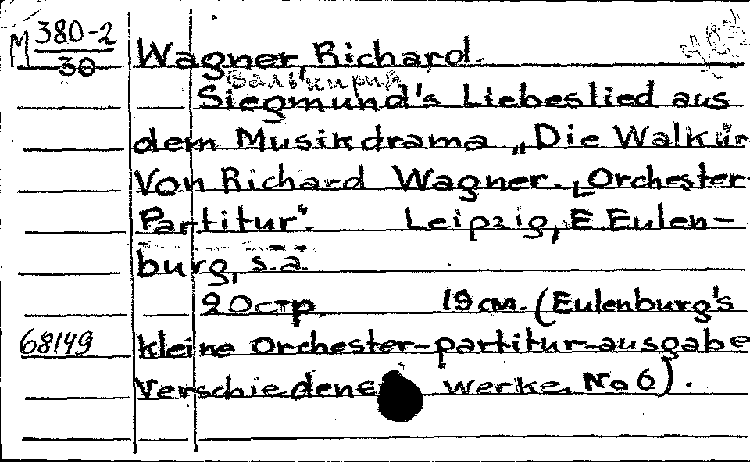 M 380-2
30
Wagner, Richard.
Валькирия
Siegmund's Liebeslied aus
dem Musikdrama „Die Walkür
Von Richard Wagner. „Orchester-
Partitur". Leipzig, E Eulen-
burg, s.a.
20стр. 19см. (Eulenburg's
68149 kleine Orchester-partitur-ausgabe
Verschiedene werke. No 6).